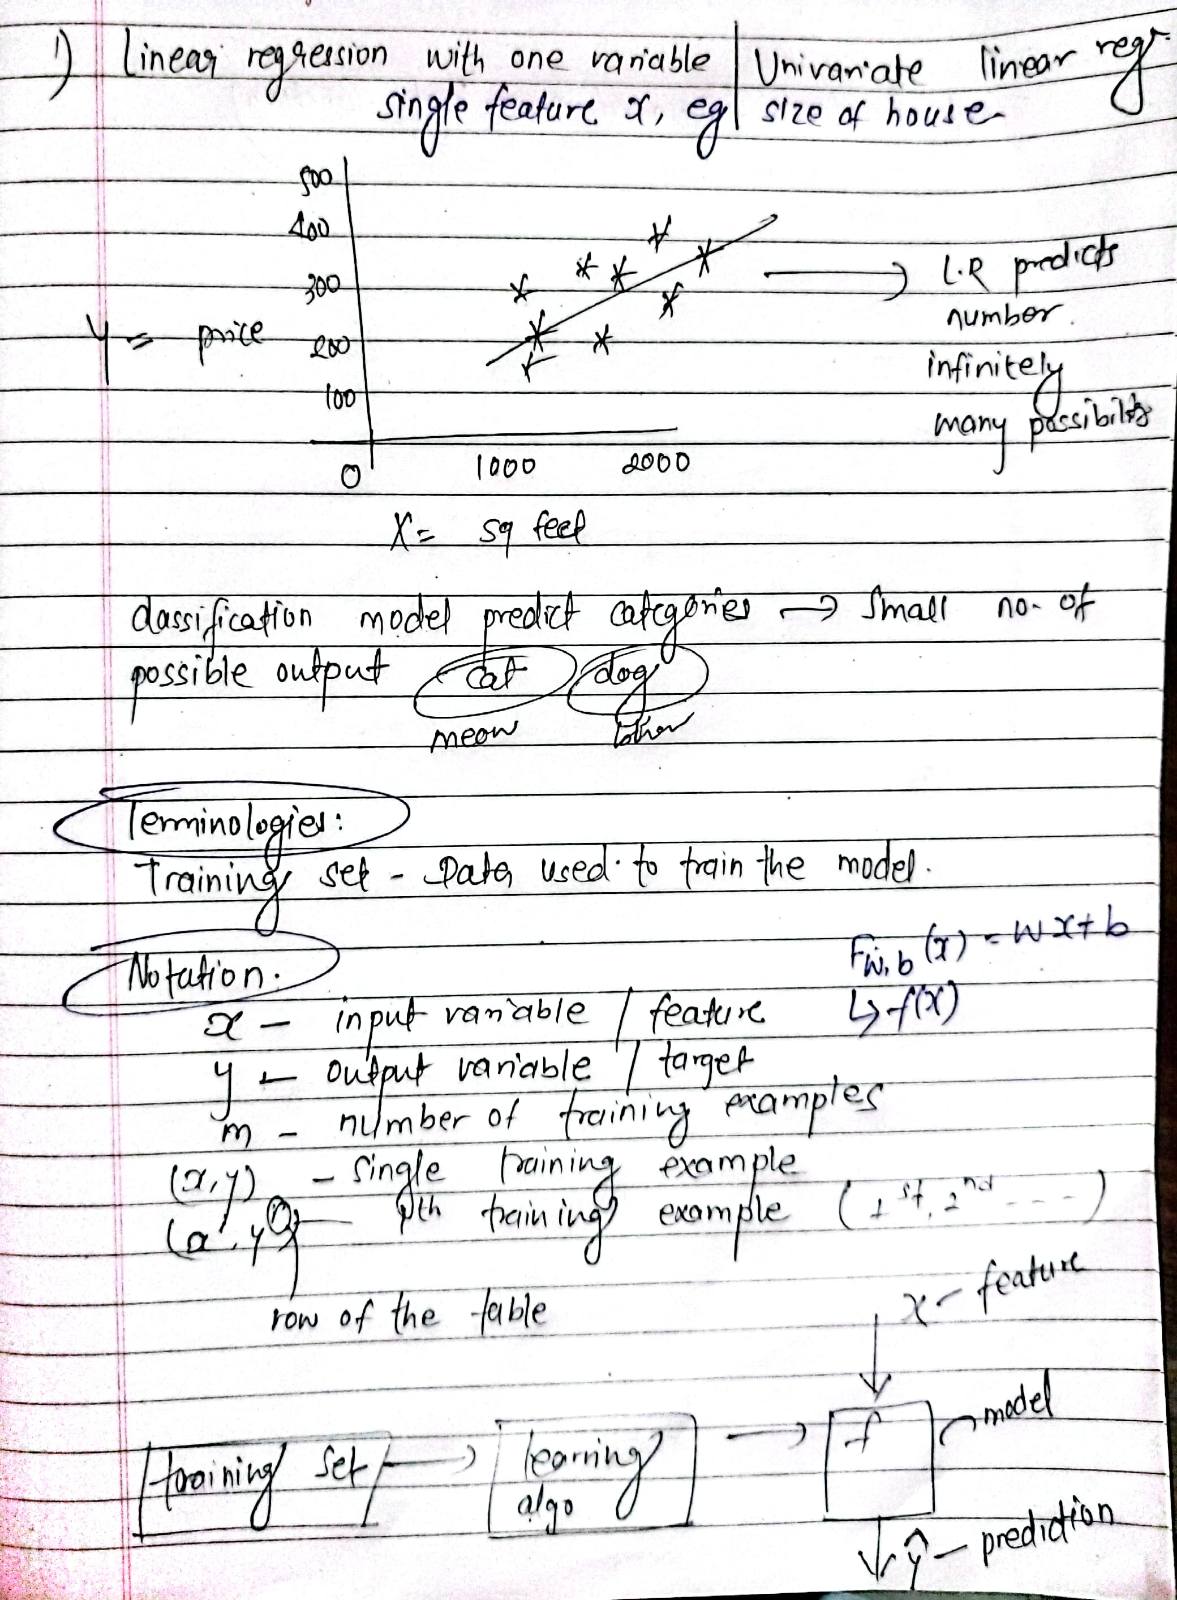 1) Linear regression with one variable | Univariate linear regr.
single feature x, eg | size of house
500
400
300
200
100
0
1000 2000
y = price
X = sq feet
→ L.R predicts
number.
infinitely
many possibilits
classification model predict categories → small no. of
possible output cat dog
meow
Terminologies:
Training set - Data used to train the model.
Notation.
Fw,b (x) = wx+b
↳ f(x)
x - input variable / feature
y - output variable / target
m - number of training examples
(x,y) - single training example
ith training example (1st, 2nd - - - -)
row of the table
x - feature
training set → learning algo → f
model
ŷ - prediction